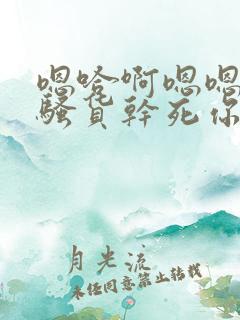 嗯哈啊嗯嗯
骚貨幹死你
月光流
未经同意禁止转载